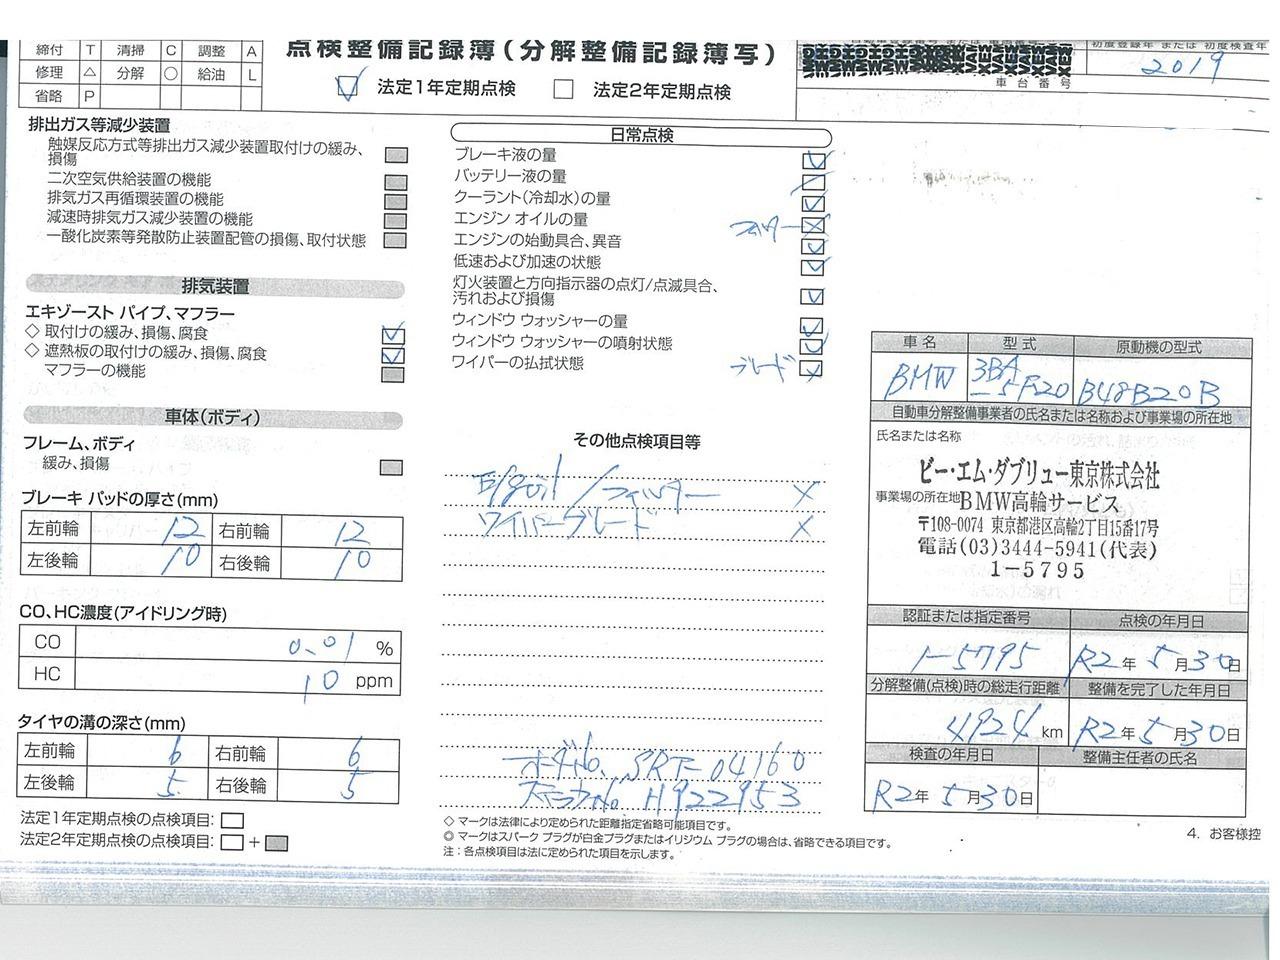 締付 T 清掃 C 調整 A
修理 △ 分解 ○ 給油 L
省略 P
点検整備記録簿(分解整備記録簿写)
法定1年定期点検 法定2年定期点検
初度登録年 または 初度検査年
2019
車台番号
排出ガス等減少装置
触媒反応方式等排出ガス減少装置取付けの緩み、
損傷
二次空気供給装置の機能
排気ガス再循環装置の機能
減速時排気ガス減少装置の機能
一酸化炭素等発散防止装置配管の損傷、取付状態
排気装置
エキゾースト パイプ、マフラー
◇ 取付けの緩み、損傷、腐食
◇ 遮熱板の取付けの緩み、損傷、腐食
マフラーの機能
車体(ボディ)
フレーム、ボディ
緩み、損傷
ブレーキ パッドの厚さ(mm)
左前輪 12 右前輪 12
左後輪 10 右後輪 10
CO、HC濃度(アイドリング時)
CO 0.01 %
HC 10 ppm
タイヤの溝の深さ(mm)
左前輪 6 右前輪 6
左後輪 5 右後輪 5
法定1年定期点検の点検項目:
法定2年定期点検の点検項目: +
日常点検
ブレーキ液の量
バッテリー液の量
クーラント(冷却水)の量
エンジン オイルの量 フィルター ×
エンジンの始動具合、異音
低速および加速の状態
灯火装置と方向指示器の点灯/点滅具合、
汚れおよび損傷
ウィンドウ ウォッシャーの量
ウィンドウ ウォッシャーの噴射状態
ワイパーの払拭状態 ブレード ×
その他点検項目等
E/goil/フィルター ×
ワイパーブレード ×
SRT-04160
H922953
◇ マークは法律により定められた距離指定省略可能項目です。
◎ マークはスパーク プラグが白金プラグまたはイリジウム プラグの場合は、省略できる項目です。
注:各点検項目は法に定められた項目を示します。
車名 型式 原動機の型式
BMW 3BA-5F20 B48B20B
自動車分解整備事業者の氏名または名称および事業場の所在地
氏名または名称
ビー・エム・ダブリュー東京株式会社
事業場の所在地 BMW高輪サービス
〒108-0074 東京都港区高輪2丁目15番17号
電話(03)3444-5941(代表)
1-5795
認証または指定番号 点検の年月日
1-5795 R2年 5月30日
分解整備(点検)時の総走行距離 整備を完了した年月日
4924 km R2年 5月30日
検査の年月日 整備主任者の氏名
R2年 5月30日
4. お客様控